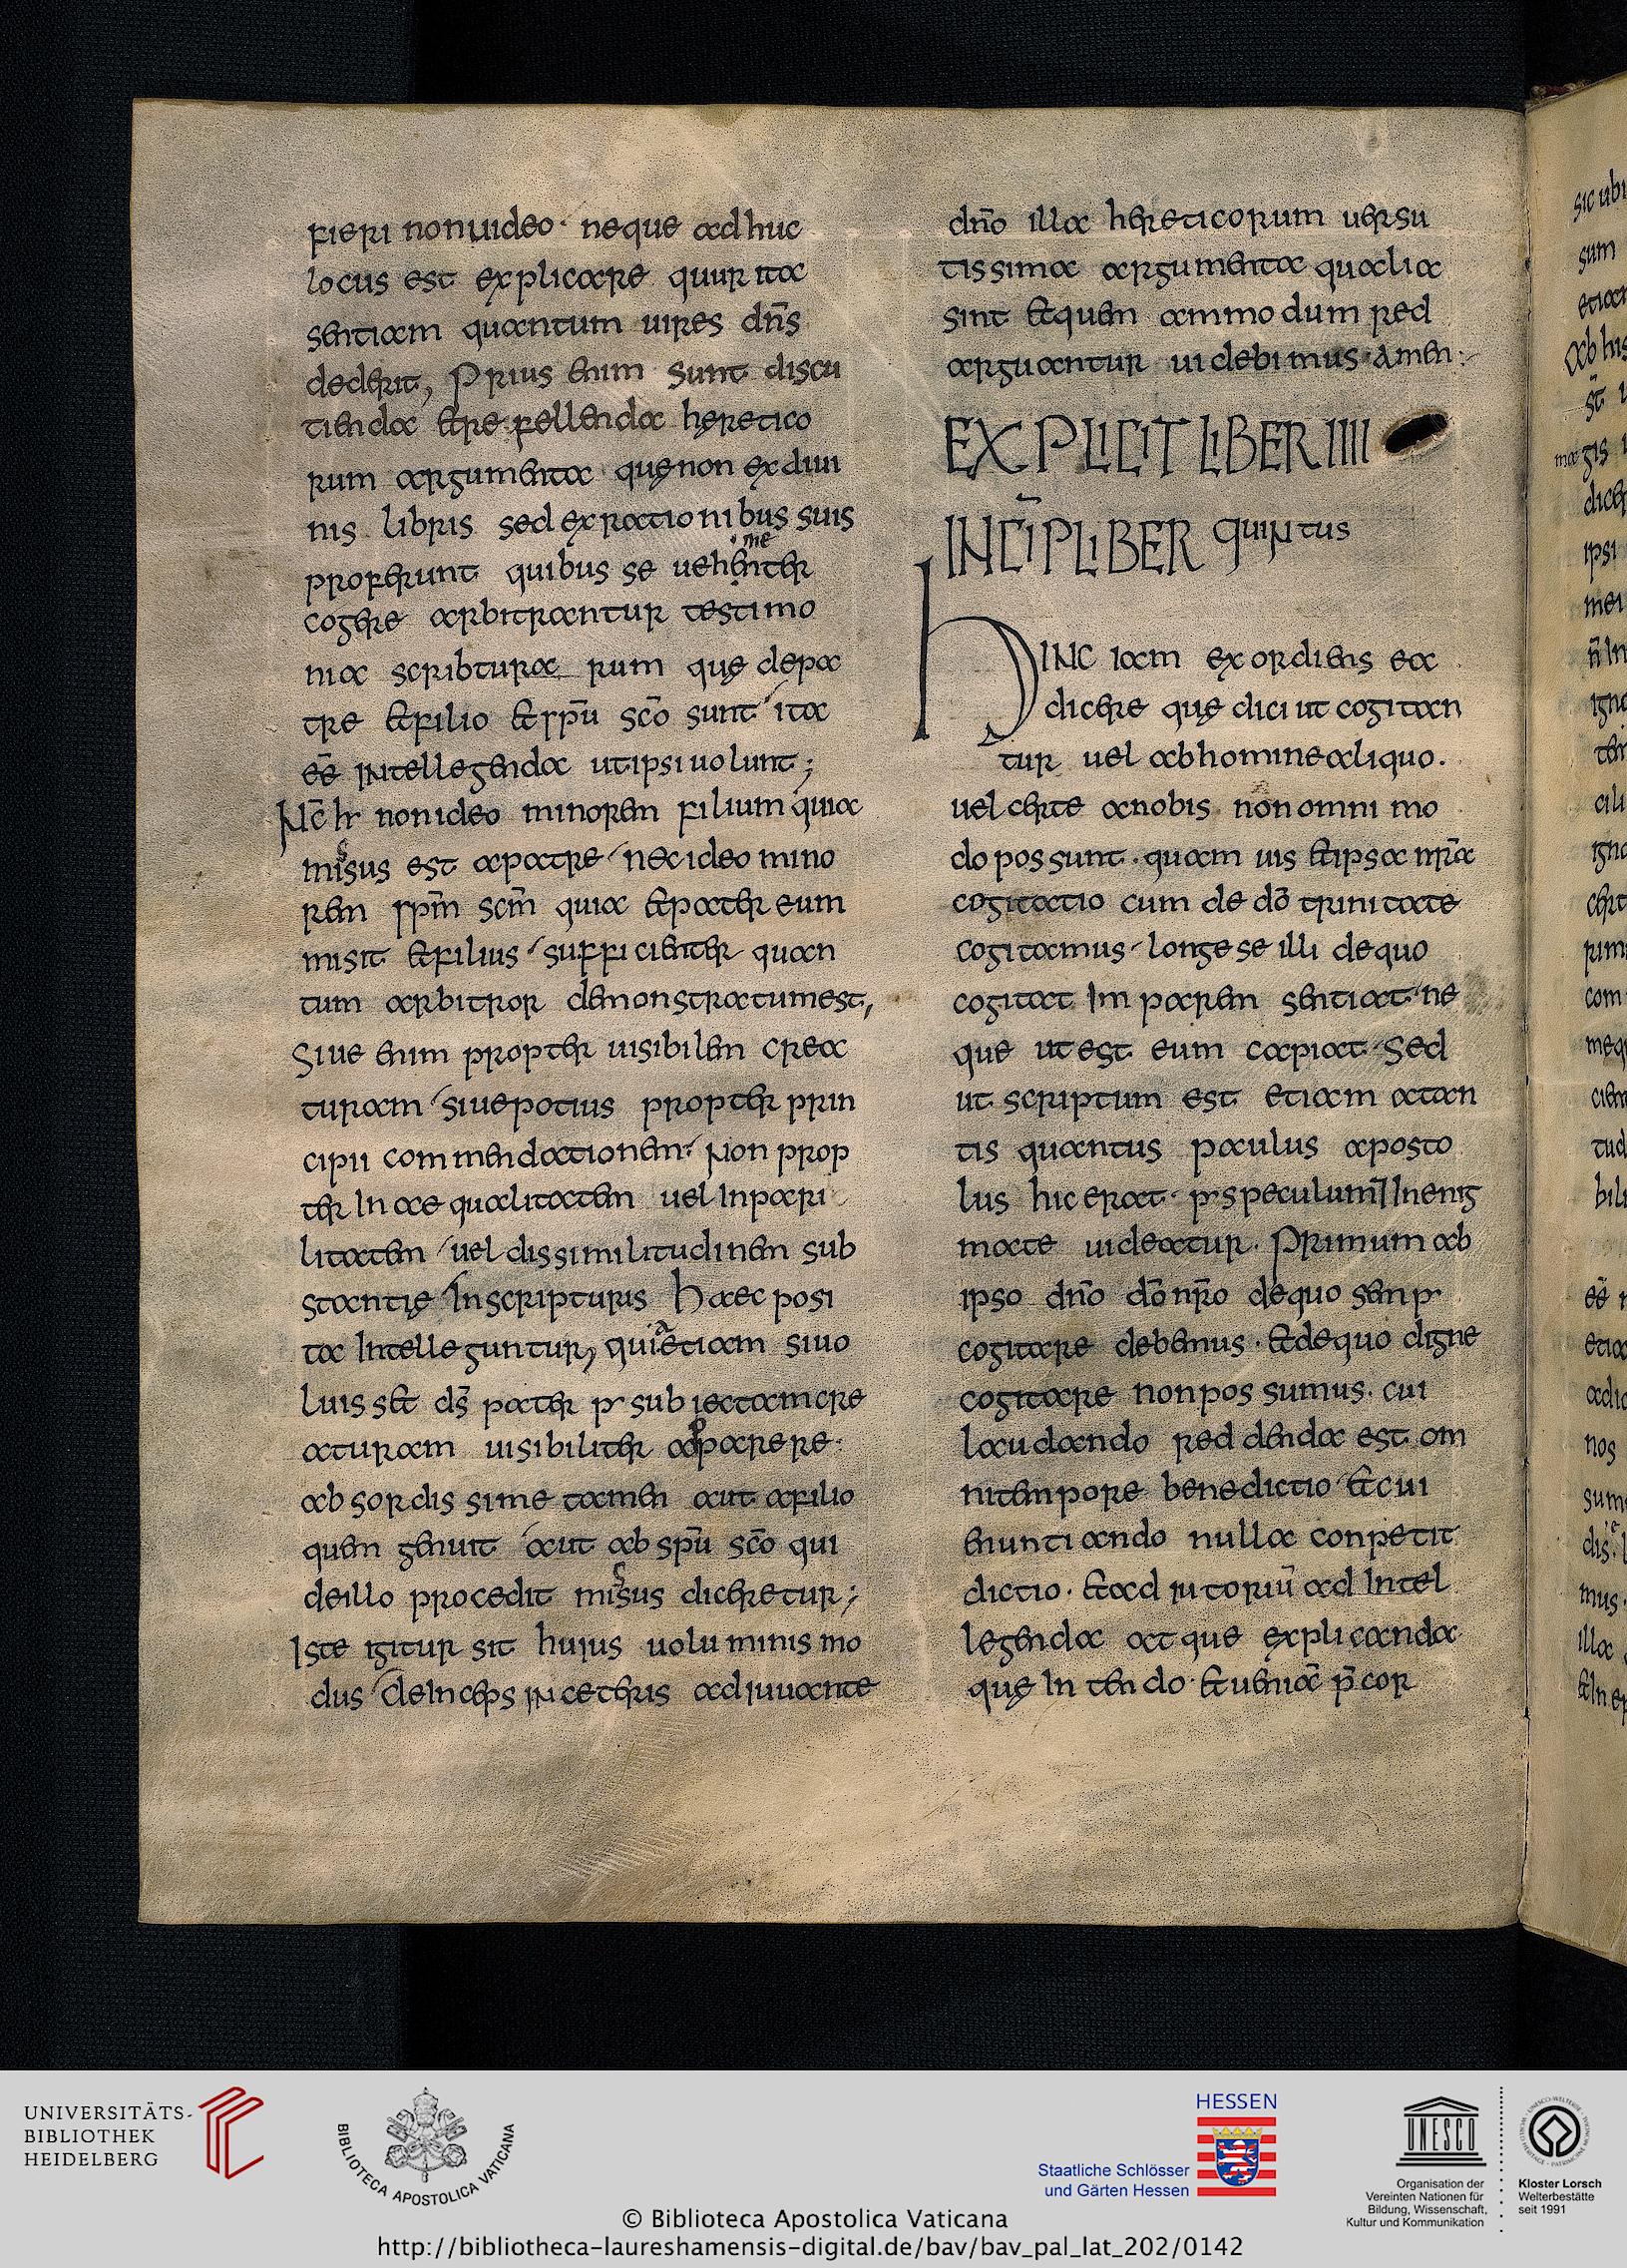 fieri non uideo · neque adhuc
locus est explicare quur ita
sentiam quantum uires dn̄s
dederit, Prius enim sunt discu
tienda et refellenda heretico
rum argumenta quę non ex diui
nis libris sed ex rationibus suis
proferunt quibus se uehementer
cogere arbitrantur testimo
nia scribturarum quę de pa
tre et filio et sp̄u sc̄o sunt ita
eē intellegenda ut ipsi uolunt ;
Nc̄ hr non ideo minorem filium quia
missus est a patre nec ideo mino
rem sp̄m sc̄m quia et pater eum
misit et filius sufficienter quan
tum arbitror demonstratum est,
Siue enim propter uisibilem crea
turam siue potius propter prin
cipii commendationem · Non prop
ter inaequalitatem uel inpari
litatem uel dissimilitudinem sub
stantię in scripturis haec posi
ta intelleguntur, quia etiam si uo
luisset ds̄ pater p subiectam cre
aturam uisibiliter apparere ·
absordissime tamen aut a filio
quem genuit aut ab sp̄u sc̄o qui
de illo procedit missus diceretur ;
Iste igitur sit huius uoluminis mo
dus deinceps in ceteris adiuuante
dn̄o illa hereticorum uersu
tissima argumenta qualia
sint et quem ammodum red
arguantur uidebimus · amen :
EXPLICIT LIBER IIII
INCIP̄ LIBER quintus
HINC iam exordiens ea
dicere quę dici ut cogitan
tur uel ab homine aliquo ·
uel certe a nobis non omni mo
do possunt · quam uis et ipsa nr̄a
cogitatio cum de dō trinitate
cogitamus longe se illi de quo
cogitat imparem sentiat ne
que ut est eum capiat sed
ut scriptum est etiam a tan
tis quantus paulus aposto
lus hic erat · p speculum in enig
mate uideatur · Primum ab
ipso dn̄o dō nr̄o de quo semp
cogitare debemus · et de quo digne
cogitare non possumus · cui
laudando reddenda est om
ni tempore benedictio et cui
enuntiando nulla conpetit
dictio · et adiutoriū ad intel
legenda atque explicanda
quę intendo · et ueniā p̄cor
UNIVERSITÄTS-
BIBLIOTHEK
HEIDELBERG
BIBLIOTECA APOSTOLICA VATICANA
HESSEN
Staatliche Schlösser
und Gärten Hessen
UNESCO
Organisation der
Vereinten Nationen für
Bildung, Wissenschaft,
Kultur und Kommunikation
Kloster Lorsch
Welterbestätte
seit 1991
© Biblioteca Apostolica Vaticana
http://bibliotheca-laureshamensis-digital.de/bav/bav_pal_lat_202/0142